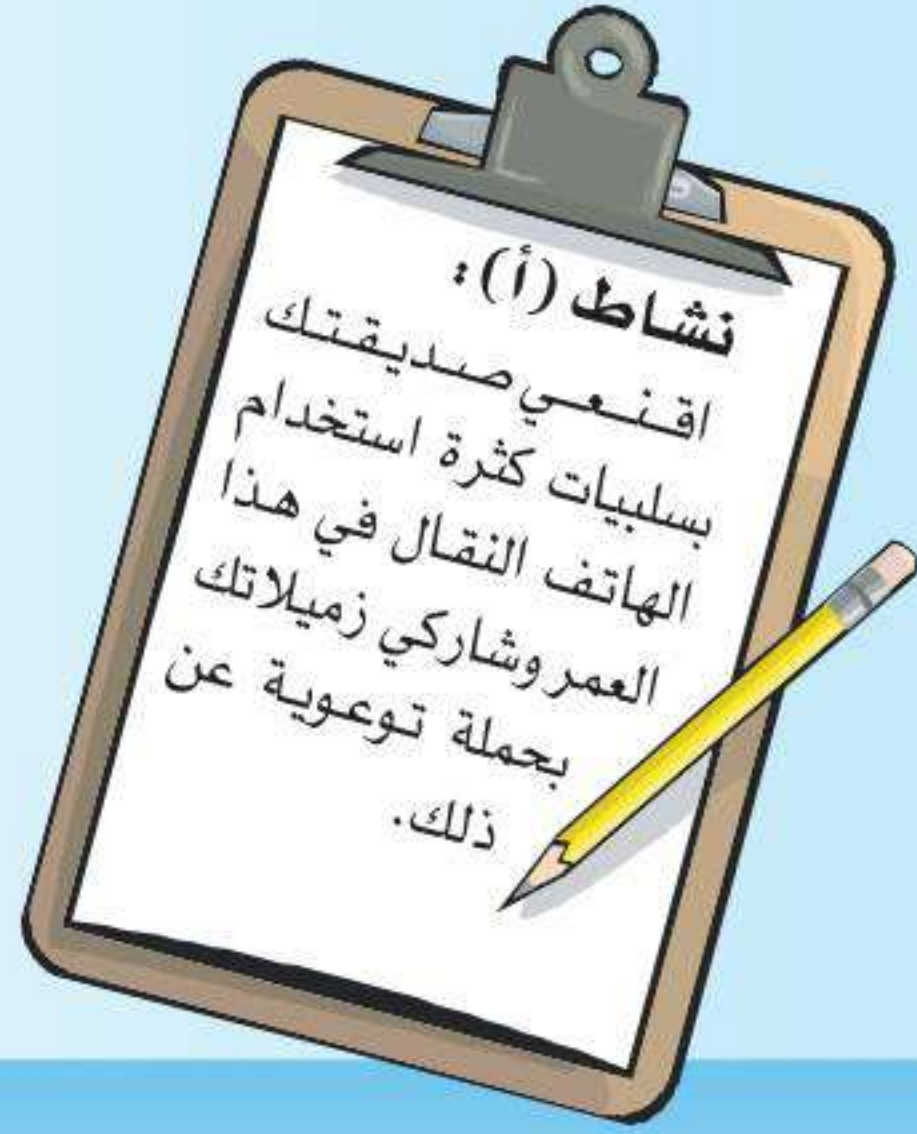 نشاط (أ):
اقنعي صديقتك
بسلبيات كثرة استخدام
الهاتف النقال في هذا
العمر وشاركي زميلاتك
بحملة توعوية عن
ذلك.